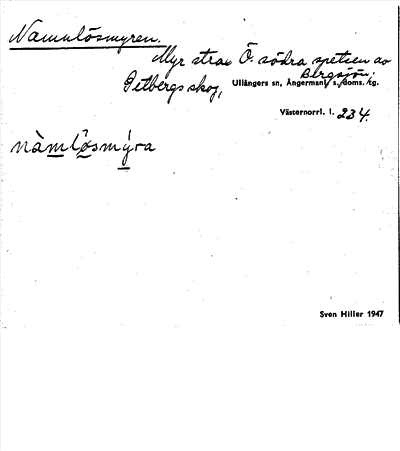 Namnlösmyren.
Myr strax Ö. södra spetsen av
Bergsjön;
Getbergs skog, Ullångers sn, Ångermanl. s. doms. tg.
Västernorrl. l. 234.
nàmlø̀smýra
Sven Hiller 1947